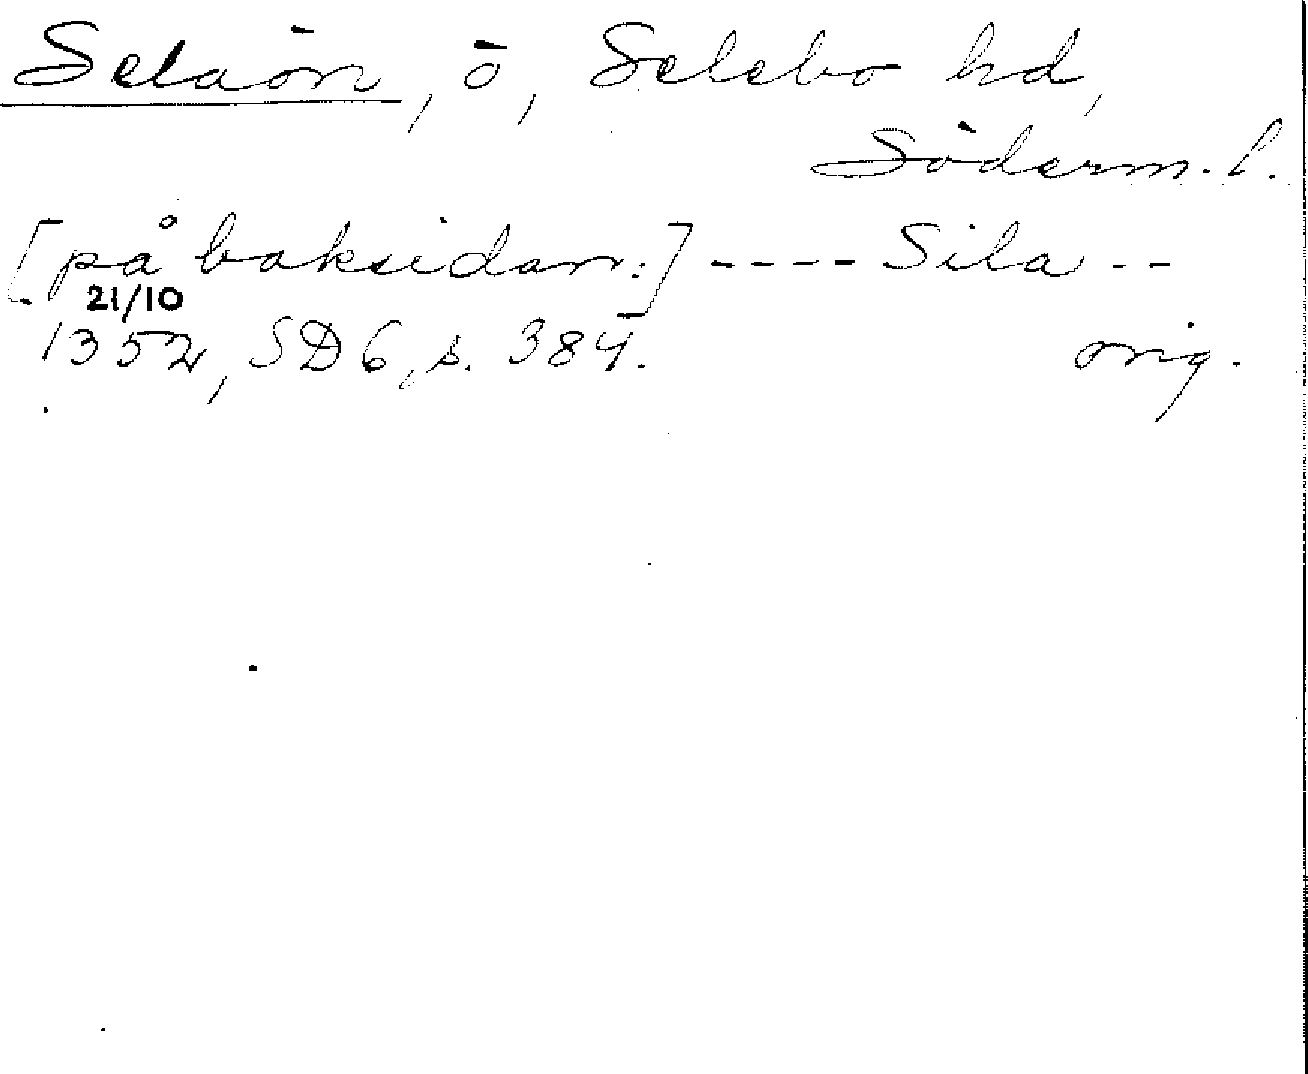 Selaön, ö, Selebo hd,
Söderm. l.
[på baksidan:] ---- Sila --
21/10
1352, SD 6, s. 384. orig.